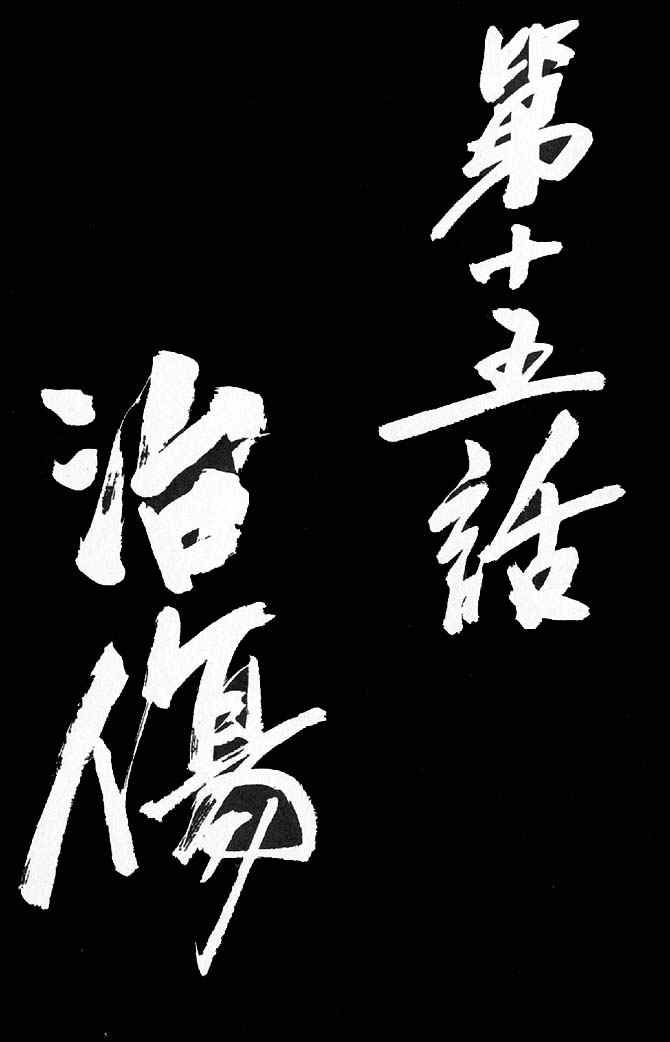 第十五話
治傷